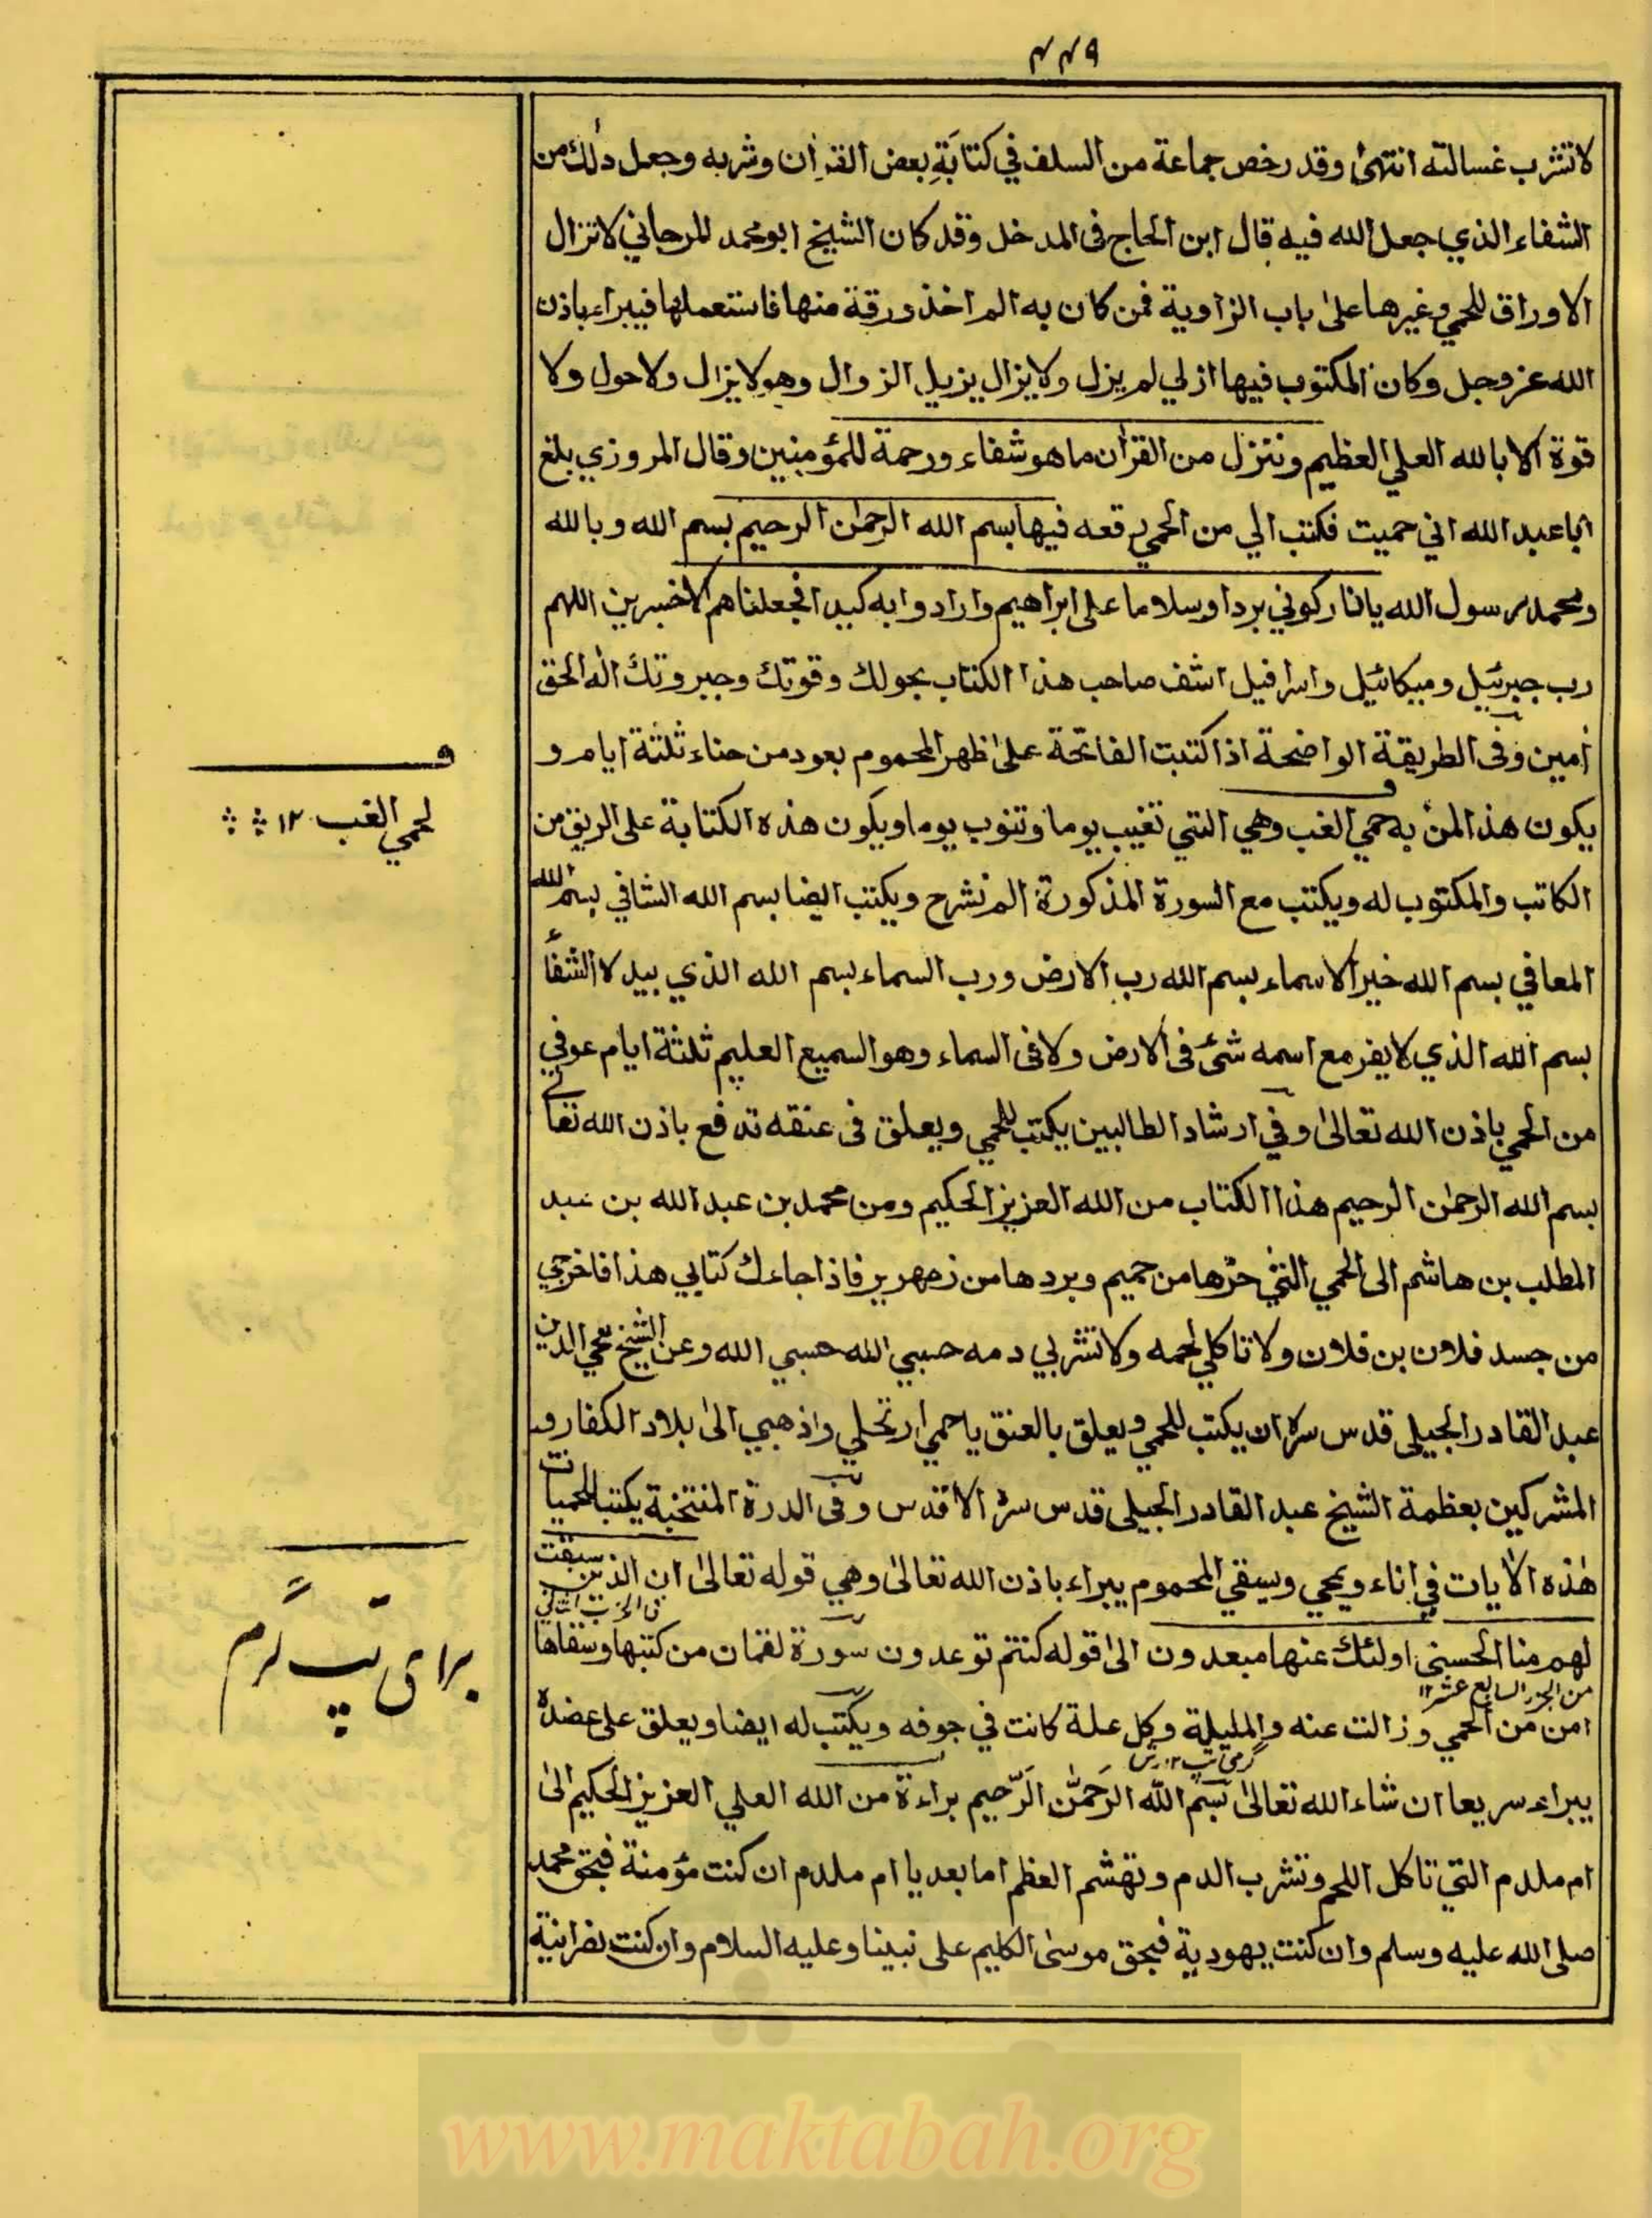 ٤٤٩
لا تشرب غسالته انتهىٰ وقد رخص جماعة من السلف في كتابَةِ بعض القرٰان وشربه وجعل ذٰلك من
الشفاء الذي جعل الله فيه قال ابن الحاج فى المدخل وقد كان الشيخ ابو محمد المرجاني لا تزال
الاوراق للحمي وغيرها علىٰ باب الزاوية فمن كان به الم اخذ ورقة منها فاستعملها فيبراء باذن
الله عز وجل وكان المكتوب فيها ازلي لم يزل ولا يزال يزيل الزوال وهو لا يزال ولا حول ولا
قوة الا بالله العلي العظيم وننزل من القرٰان ما هو شفاء ورحمة للمؤمنين وقال المروزي بلغ
ابا عبد الله اني حميت فكتب الي من الحمي رقعه فيها بسم الله الرحمٰن الرحيم بسم الله وبالله
ومحمد رسول الله يا نار كوني بردا وسلاما على ابراهيم وارادوا به كيدا فجعلناهم الاخسرين اللهم
رب جبرئيل وميكائيل واسرافيل اشف صاحب هذا الكتاب بحولك وقوتك وجبروتك اله الحق
اٰمين وفى الطريقة الواضحة اذا كتبت الفاتحة علىٰ ظهر المحموم بعود من حناء ثلثة ايام و
يكون هذا لمن به حمي الغب وهي التي تغيب يوما وتنوب يوما ويكون هذه الكتابة على الريق من
لحمي الغب ١٢
الكاتب والمكتوب له ويكتب مع السورة المذكورة الم نشرح ويكتب ايضا بسم الله الشافي بسم الله
المعافي بسم الله خير الاسماء بسم الله رب الارض ورب السماء بسم الله الذي بيده الشفاء
بسم الله الذي لا يضر مع اسمه شئ فى الارض ولا فى السماء وهو السميع العليم ثلثة ايام عوفي
من الحمي باذن الله تعالىٰ وفي ارشاد الطالبين يكتب للحمي ويعلق فى عنقه تدفع باذن الله تعالے
بسم الله الرحمٰن الرحيم هذا الكتاب من الله العزيز الحكيم ومن محمد بن عبد الله بن عبد
المطلب بن هاشم الى الحمي التي حرها من حميم وبردها من زمهرير فاذا جاءك كتابي هذا فاخرجي
من جسد فلان بن فلان ولا تاكلي لحمه ولا تشربي دمه حسبي الله حسبي الله وعن الشيخ محي الدين
عبد القادر الجيلى قدس سره ان يكتب للحمي ويعلق بالعنق يا حمي ارتحلي واذهبي الىٰ بلاد الكفار و
المشركين بعظمة الشيخ عبد القادر الجيلى قدس سره الاقدس وفى الدرة المنتخبة يكتب للحميات
هٰذه الاٰيات في اناء ويمحي ويسقي المحموم يبراء باذن الله تعالىٰ وهي قوله تعالىٰ ان الذين سبقت
لهم منا الحسنى اولئك عنها مبعدون الىٰ قوله كنتم توعدون سورة لقمان من كتبها وسقاها
برای تپ گرم
من الجزء السابع عشر ١٢
امن من الحمي وزالت عنه والمليلة وكل علة كانت في جوفه ويكتب له ايضا ويعلق على عضده
گرمی تپ ١٢
يبراء سريعا ان شاء الله تعالىٰ بسم اللّٰه الرَحمٰن الرَّحيم براءة من الله العلي العزيز الحكيم الىٰ
ام ملدم التي تاكل اللحم وتشرب الدم وتهشم العظم اما بعد يا ام ملدم ان كنت مؤمنة فبحق محمد
صلى الله عليه وسلم وان كنت يهودية فبحق موسىٰ الكليم على نبينا وعليه السلام وان كنت نصرانية
www.maktabah.org